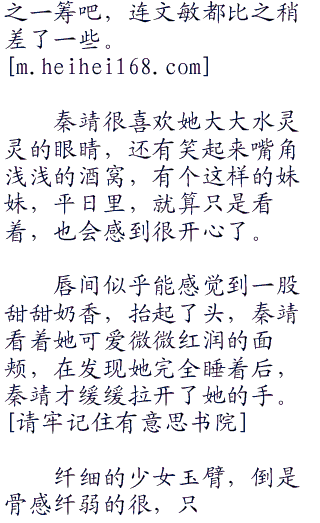 之一筹吧，连文敏都比之稍
差了一些。
[m.heihei168.com]
秦靖很喜欢她大大水灵
灵的眼睛，还有笑起来嘴角
浅浅的酒窝，有个这样的妹
妹，平日里，就算只是看
着，也会感到很开心了。
唇间似乎能感觉到一股
甜甜奶香，抬起了头，秦靖
看着她可爱微微红润的面
颊，在发现她完全睡着后，
秦靖才缓缓拉开了她的手。
[请牢记住有意思书院]
纤细的少女玉臂，倒是
骨感纤弱的很，只